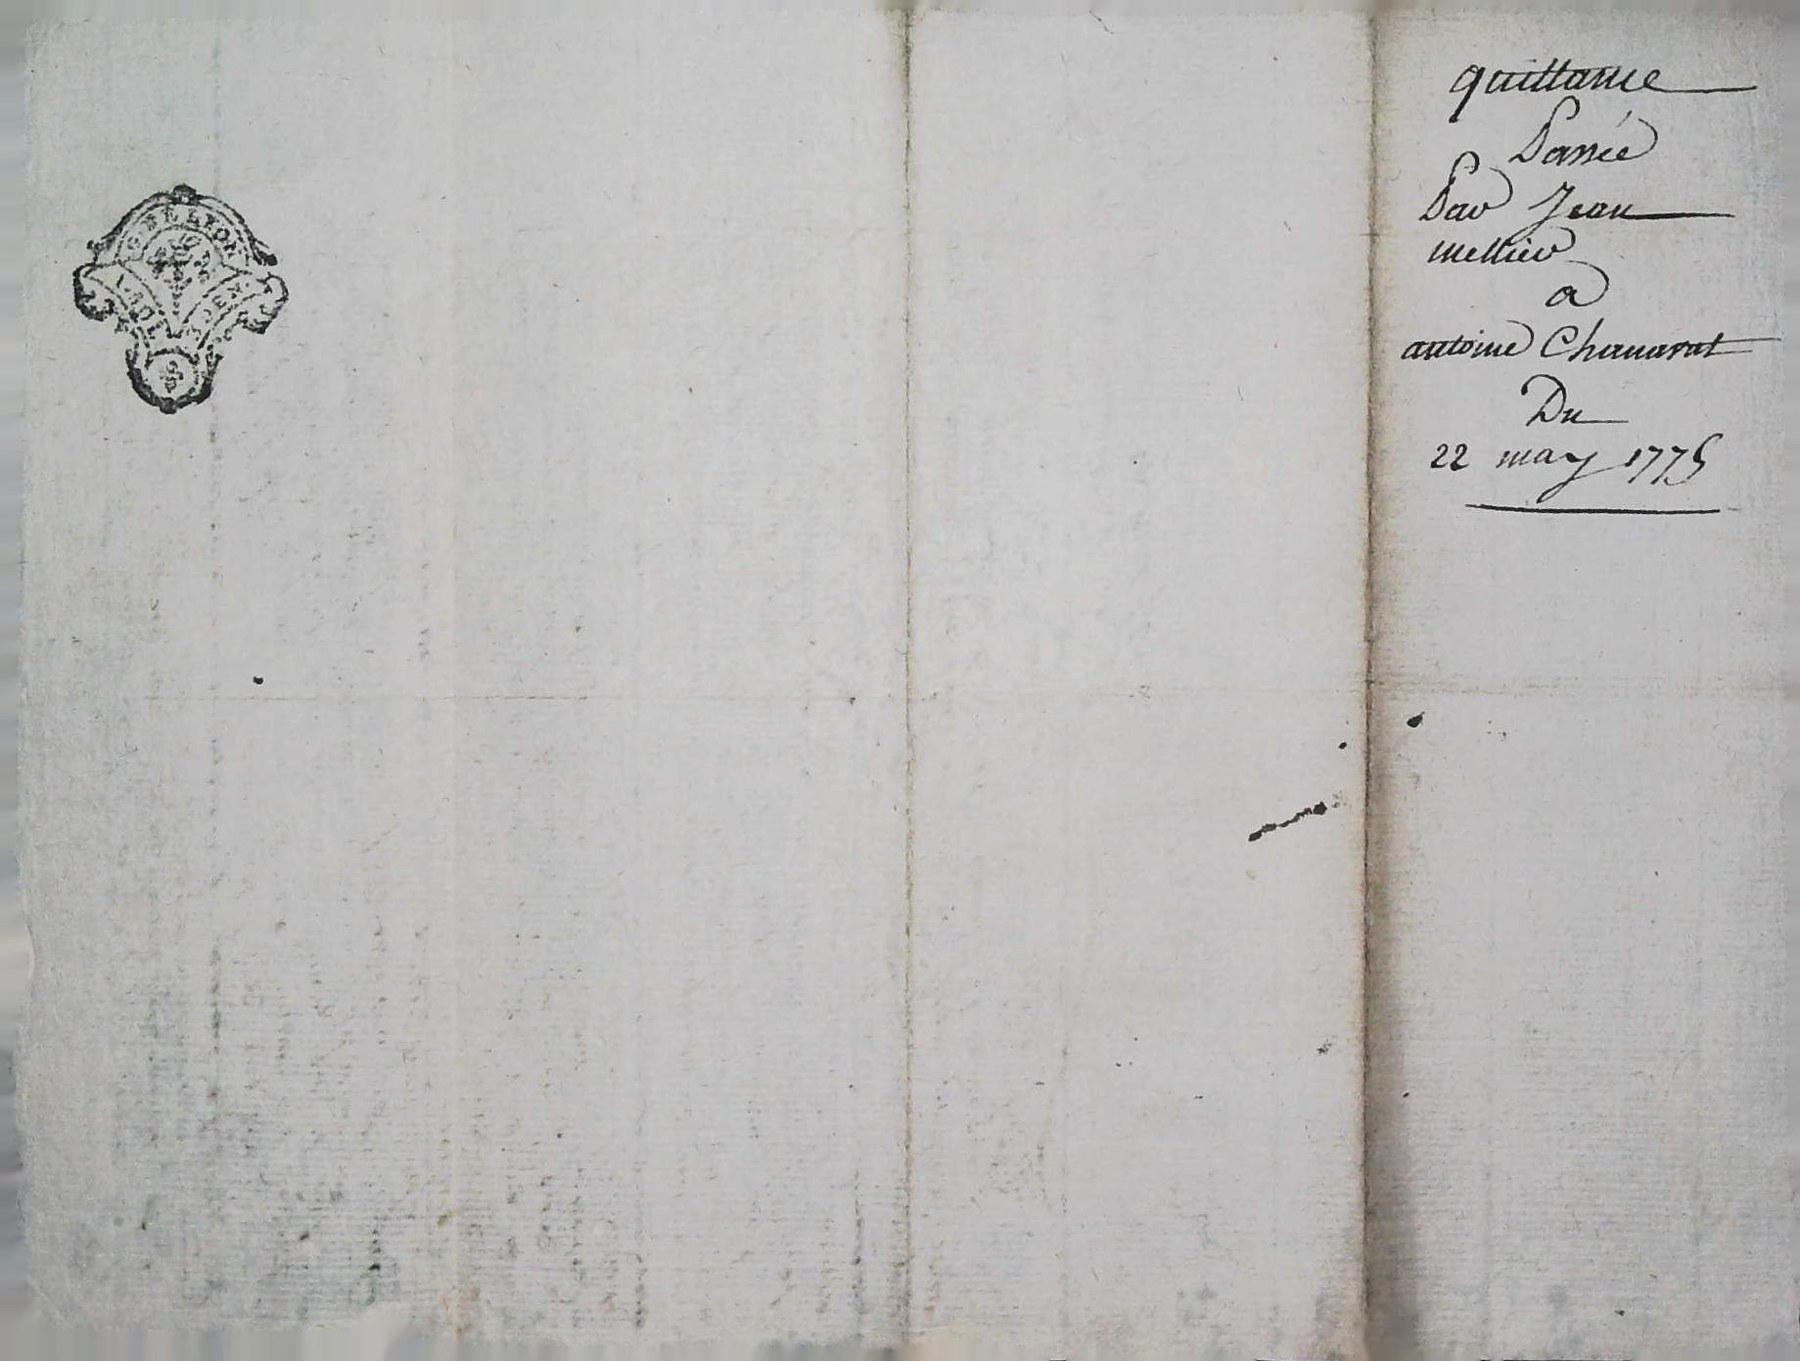 quittance
Passée
Par Jean
mellier
a
antoine Chanavat
Du
22 may 1775